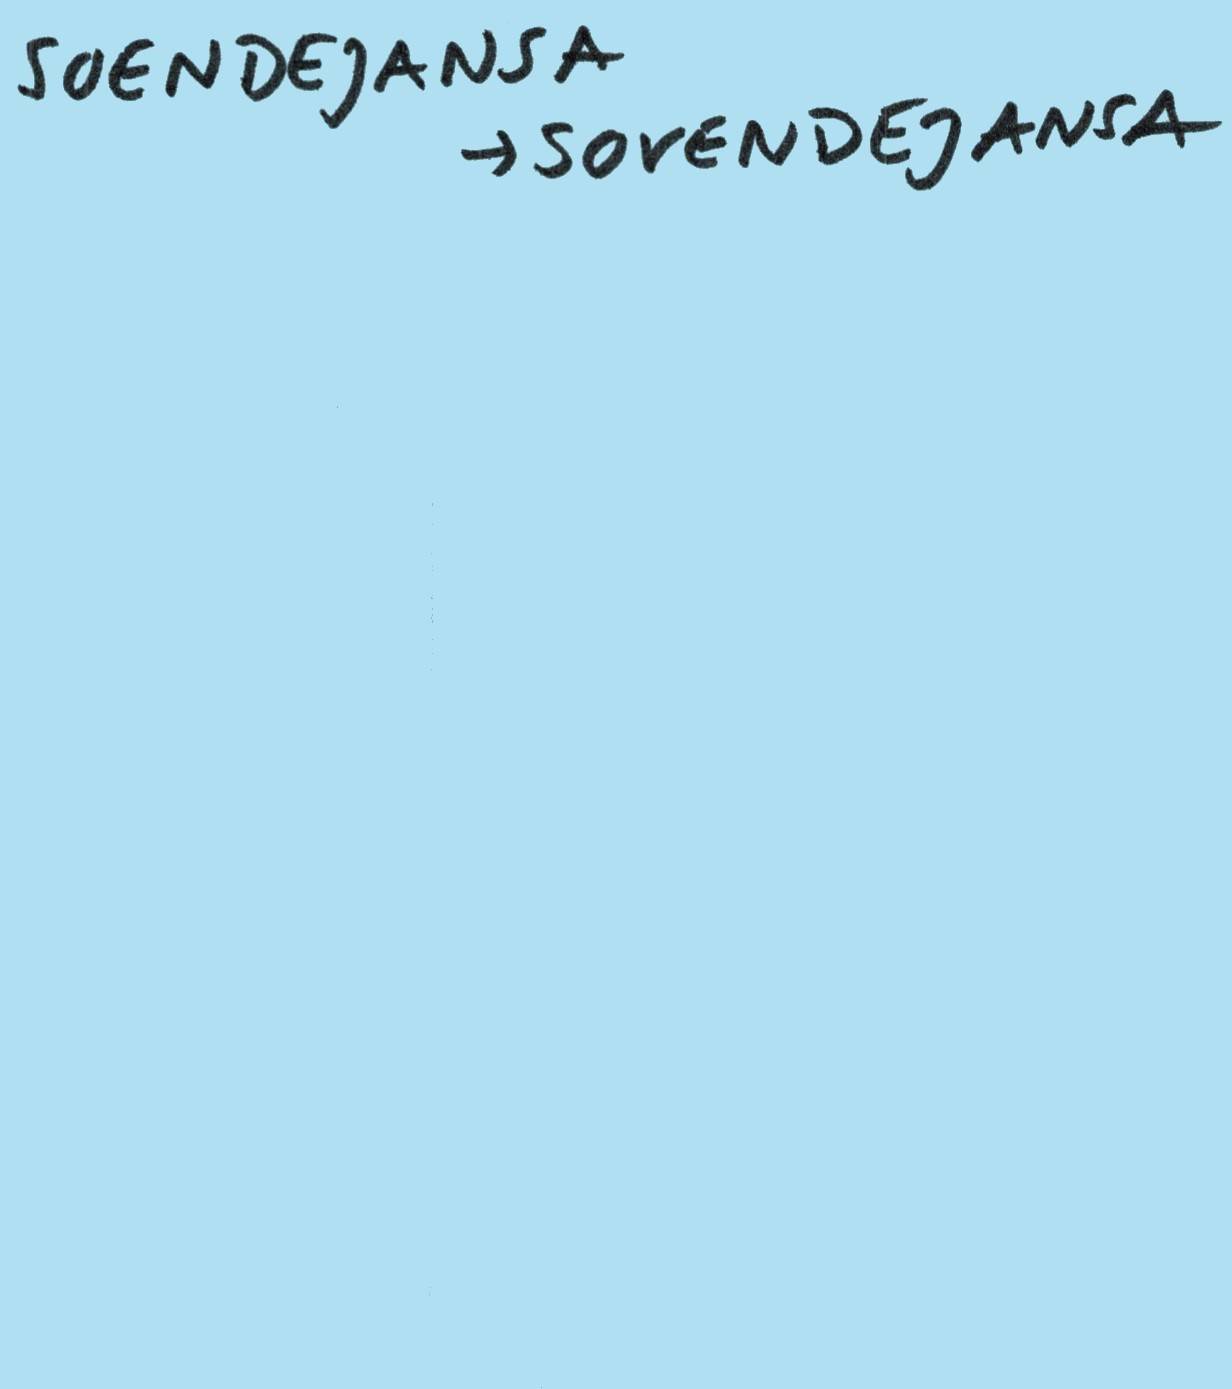 SOENDEJANSA
→SOVENDEJANSA